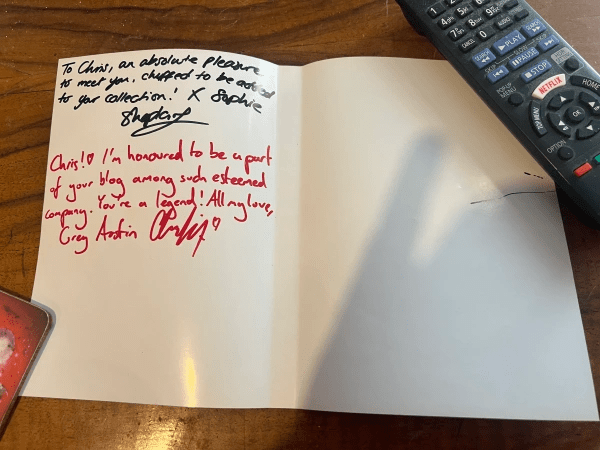 To Chris, an absolute pleasure
to meet you, chuffed to be added
to your collection! X Sophie
Chris! I'm honoured to be a part
of your blog among such esteemed
company. You're a legend! All my love,
Greg Austin
7 8 9
CANCEL 0
PLAY
PAUSE
STOP
NETFLIX
HOME
POP-UP MENU
OK
OPTION